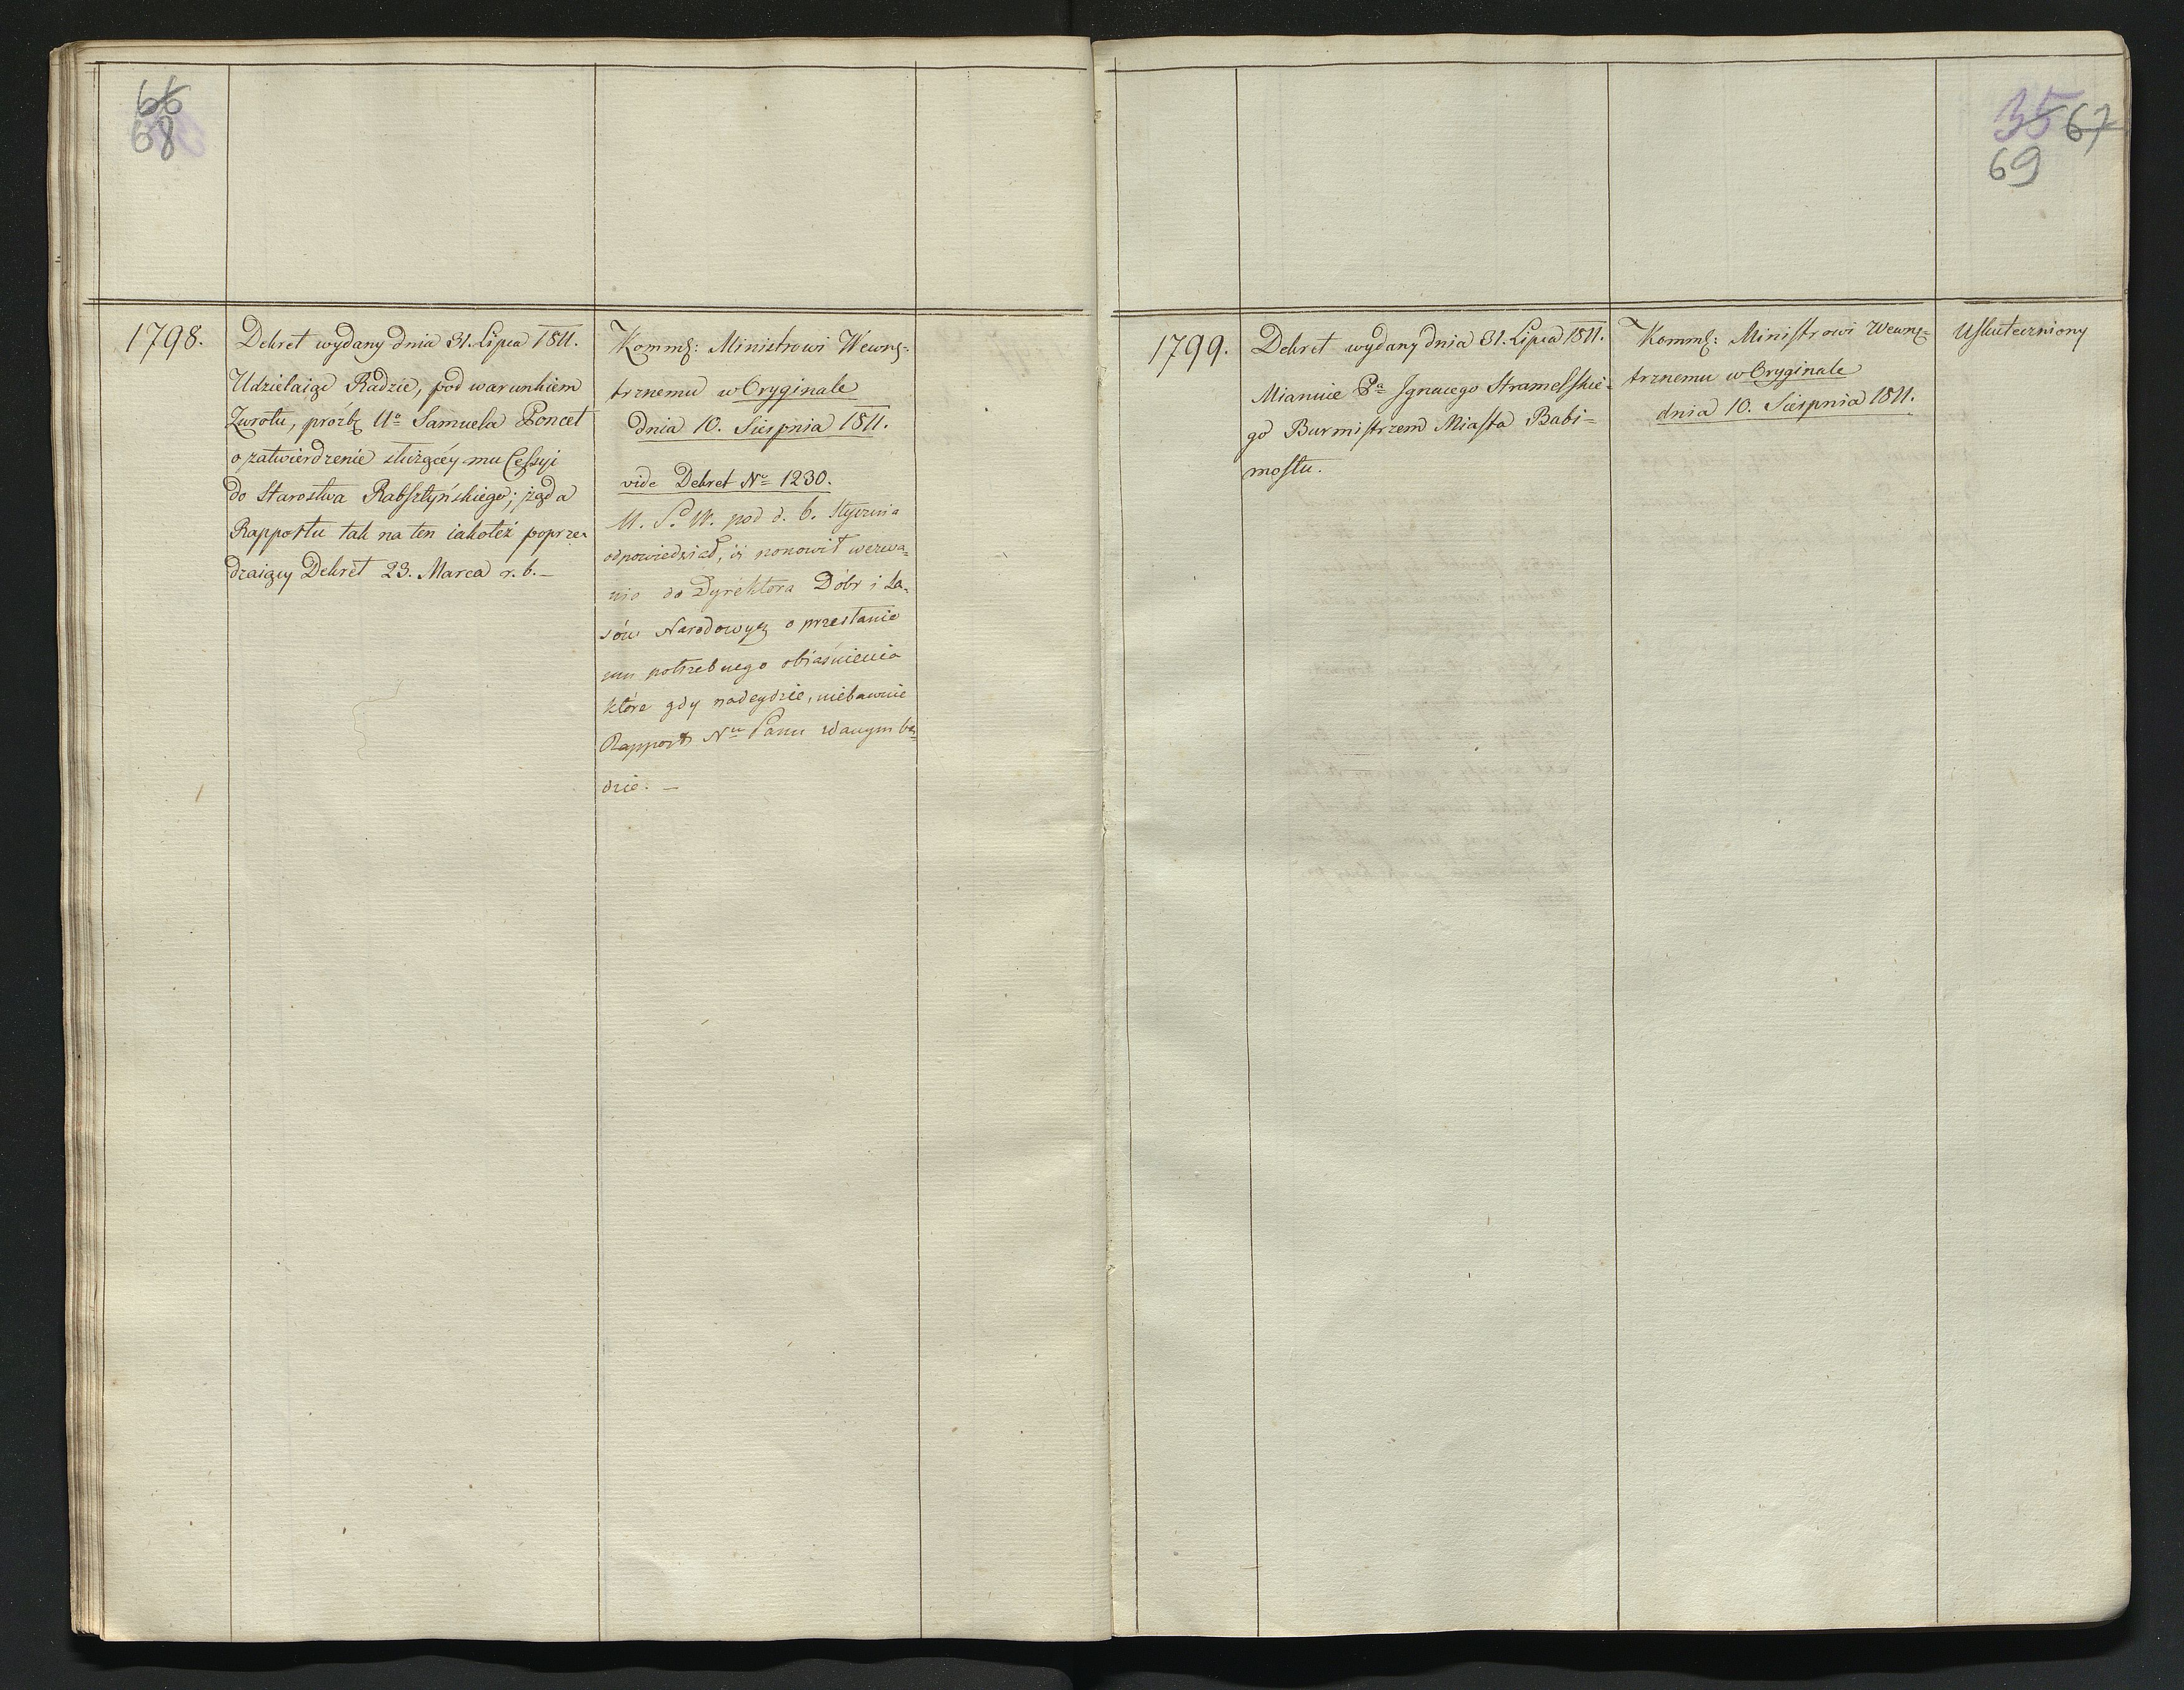 66
68
1798.
Dekret wydany dnia 31. Lipca 1811.
Udzielaiąc Radzie, pod warunkiem
Zwrotu, prozbę Uo Samuela Poncet
o zatwierdzenie służącey mu Cessyi
do Starostwa Rabsztyńskiego; żąda
Rapportu tak na ten iakoteż poprze=
dzaiący Dekret 23. Marca r. b. —
Kommę: Ministrowi Wewnę=
trznemu w Oryginale
dnia 10. Sierpnia 1811.
vide Dekret No 1230.
M. S. W. pod d. 6. Stycznia
odpowiedział, iż ponowił wezwa=
nie do Dyrektora Dobr i La=
sów Narodowych o przesłanie
mu potrzebnego obiaśnienia
które gdy nadeydzie, niebawnie
Rapport Nu Panu zdanym bę=
dzie. —
35 67
69
1799.
Dekret wydany dnia 31. Lipca 1811.
Mianuie Pa Ignacego Stramelskie=
go Burmistrzem Miasta Babi=
mostu.
Kommę: Ministrowi Wewnę=
trznemu w Oryginale
dnia 10. Sierpnia 1811.
Uskuteczniony